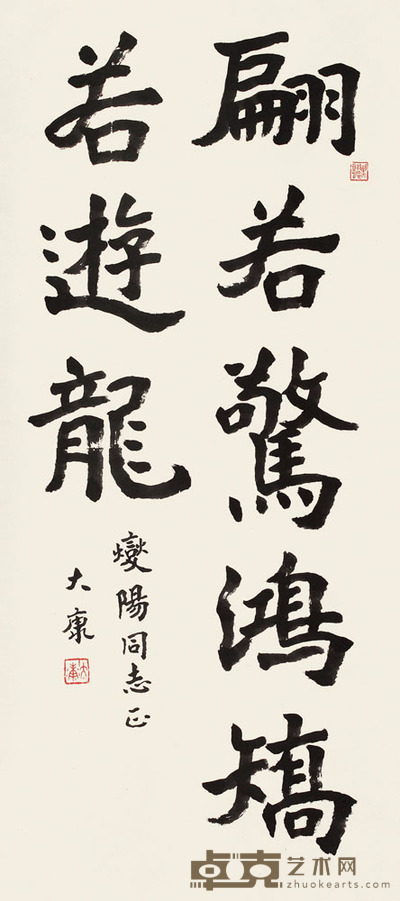 翩若驚鴻矯
若遊龍
燮陽同志正
大康
卓克艺术网
zhuokearts.com